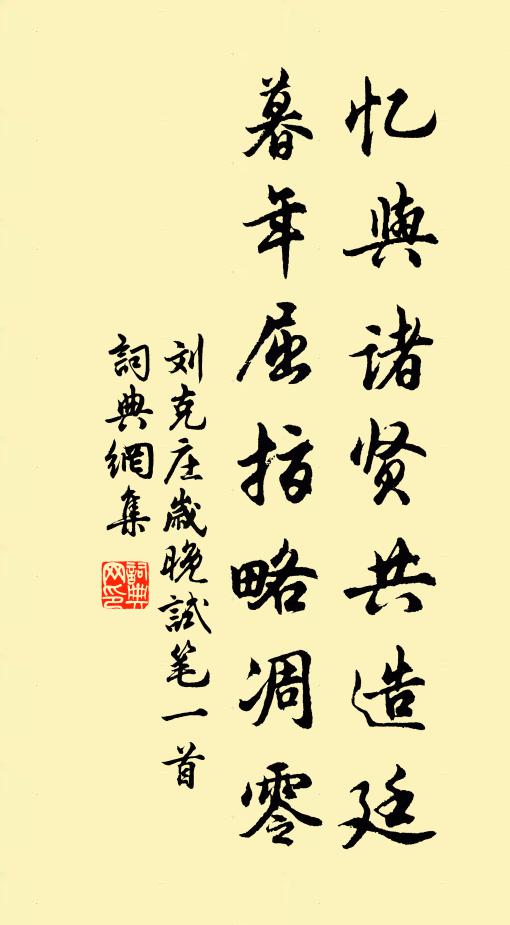 忆與诸贤共造廷
暮年屈指略凋零
刘克庄歲晚試笔一首
詞典網集
詞典
网印